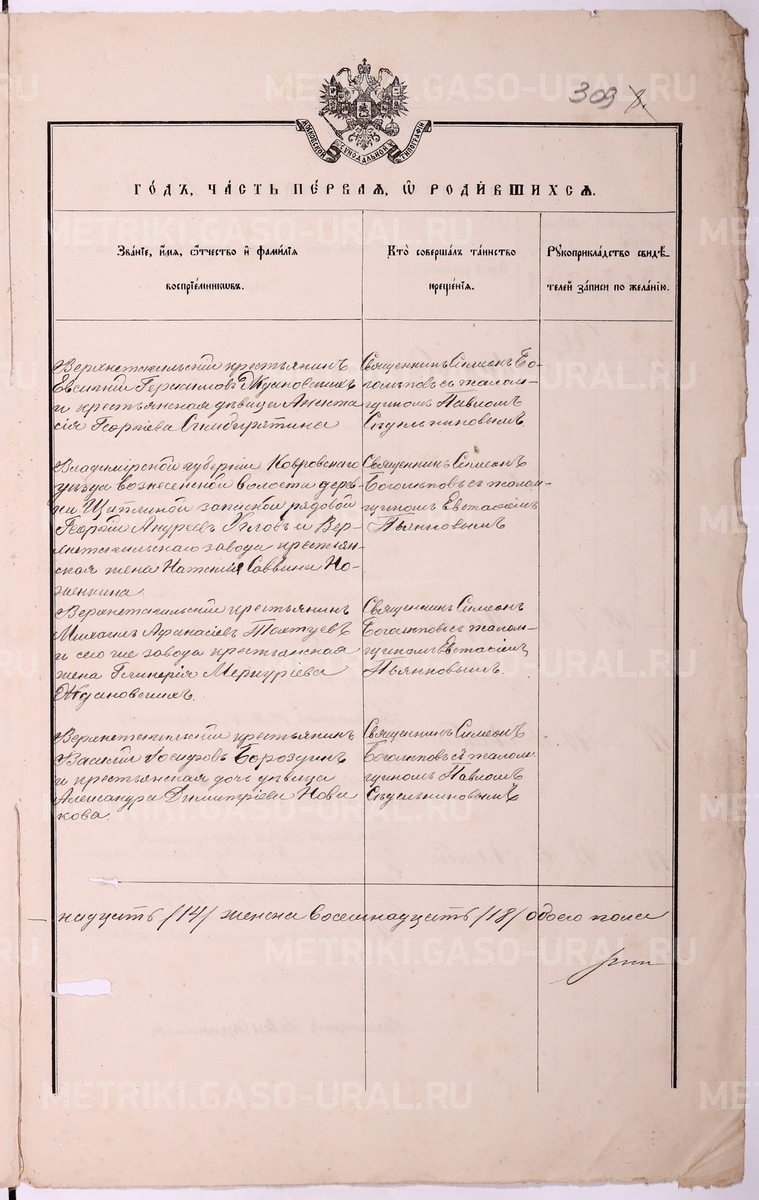 309
МОСКОВСКОЙ СѴНОДАЛЬНОЙ ТИПОГРАФІИ
ГО́ДЪ, ЧА́СТЬ ПЕ́РВАЯ, Ѡ҆ РОДИ́ВШИХСѦ.
Зва́нїе, и҆́мѧ, ѻ҆́тчество и҆ фами́лїѧ
воспрїе́мникѡвъ.
Кто̀ соверша́лъ та́инство
креще́нїѧ.
Рꙋкоприкла́дство свидѣ́-
телей за́писи по жела́нїю.
Верхнетагильскій крестьянинъ
Евгеній Ждановскихъ
и крестьянская дѣвица Анаста
сія Георгіева Симбирятина
Священникъ Симеонъ Бо-
голѣповъ съ псалом-
щикомъ Павломъ
Сѣдельниковымъ
Владимірской губерніи Ковровскаго
уѣзда Вознесенской волости дерев-
ни запасной рядовой
Георгій Андреевъ и Вер-
хнетагильскаго завода крестьян-
ская жена Наталія Саввина Но-
женкина.
Священникъ Симеонъ
Боголѣповъ съ псалом-
щикомъ Евстафіемъ
Пьянковымъ
Верхнетагильскій крестьянинъ
Михаилъ Афанасіевъ Тохтуевъ
и сего же завода крестьянская
жена Гликерія Меркуріева
Ждановскихъ.
Священникъ Симеонъ
Боголѣповъ съ псалом-
щикомъ Евстафіемъ
Пьянковымъ.
Верхнетагильскій крестьянинъ
Василій Іосифовъ Бороздинъ
и крестьянская дочь дѣвица
Александра Димитріева Нови
кова.
Священникъ Симеонъ
Боголѣповъ съ псалом-
щикомъ Павломъ
Сѣдельниковымъ
надцать /14/ женска восемнадцать /18/ обоего пола
METRIKI.GASO-URAL.RU